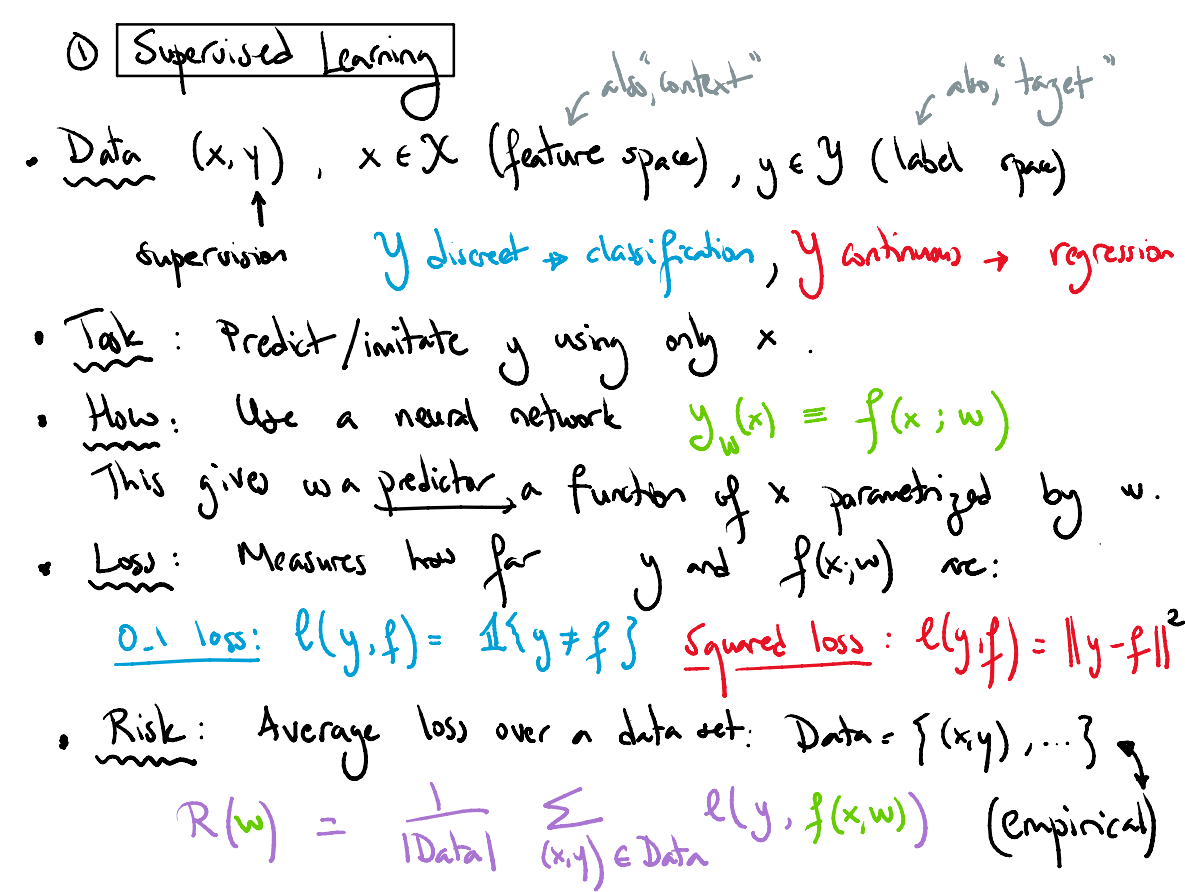 ① Supervised Learning
also, "context" also, "target"
• Data (x, y), x ∈ 𝒳 (feature space), y ∈ 𝒴 (label space)
supervision 𝒴 discreet → classification, 𝒴 continuous → regression
• Task: Predict/imitate y using only x.
• How: Use a neural network y_w(x) ≡ f(x; w)
This gives us a predictor, a function of x parametrized by w.
• Loss: Measures how far y and f(x;w) are:
0-1 loss: ℓ(y, f) = 𝟙{y ≠ f} Squared loss: ℓ(y,f) = ||y - f||²
• Risk: Average loss over a data set: Data = {(x,y), ...}
R(w) = 1/|Data| Σ_{(x,y) ∈ Data} ℓ(y, f(x,w)) (empirical)